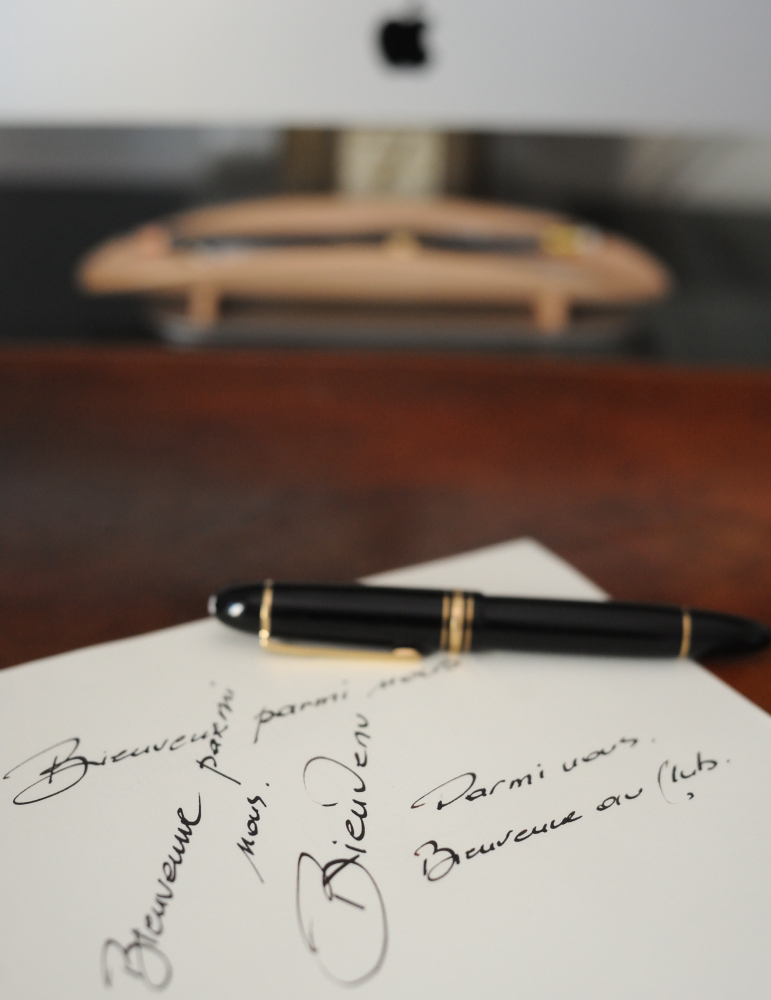 Bienvenue parmi nous
Bienvenue parmi
nous.
Bienvenu
Parmi nous.
Bienvenue au Club.